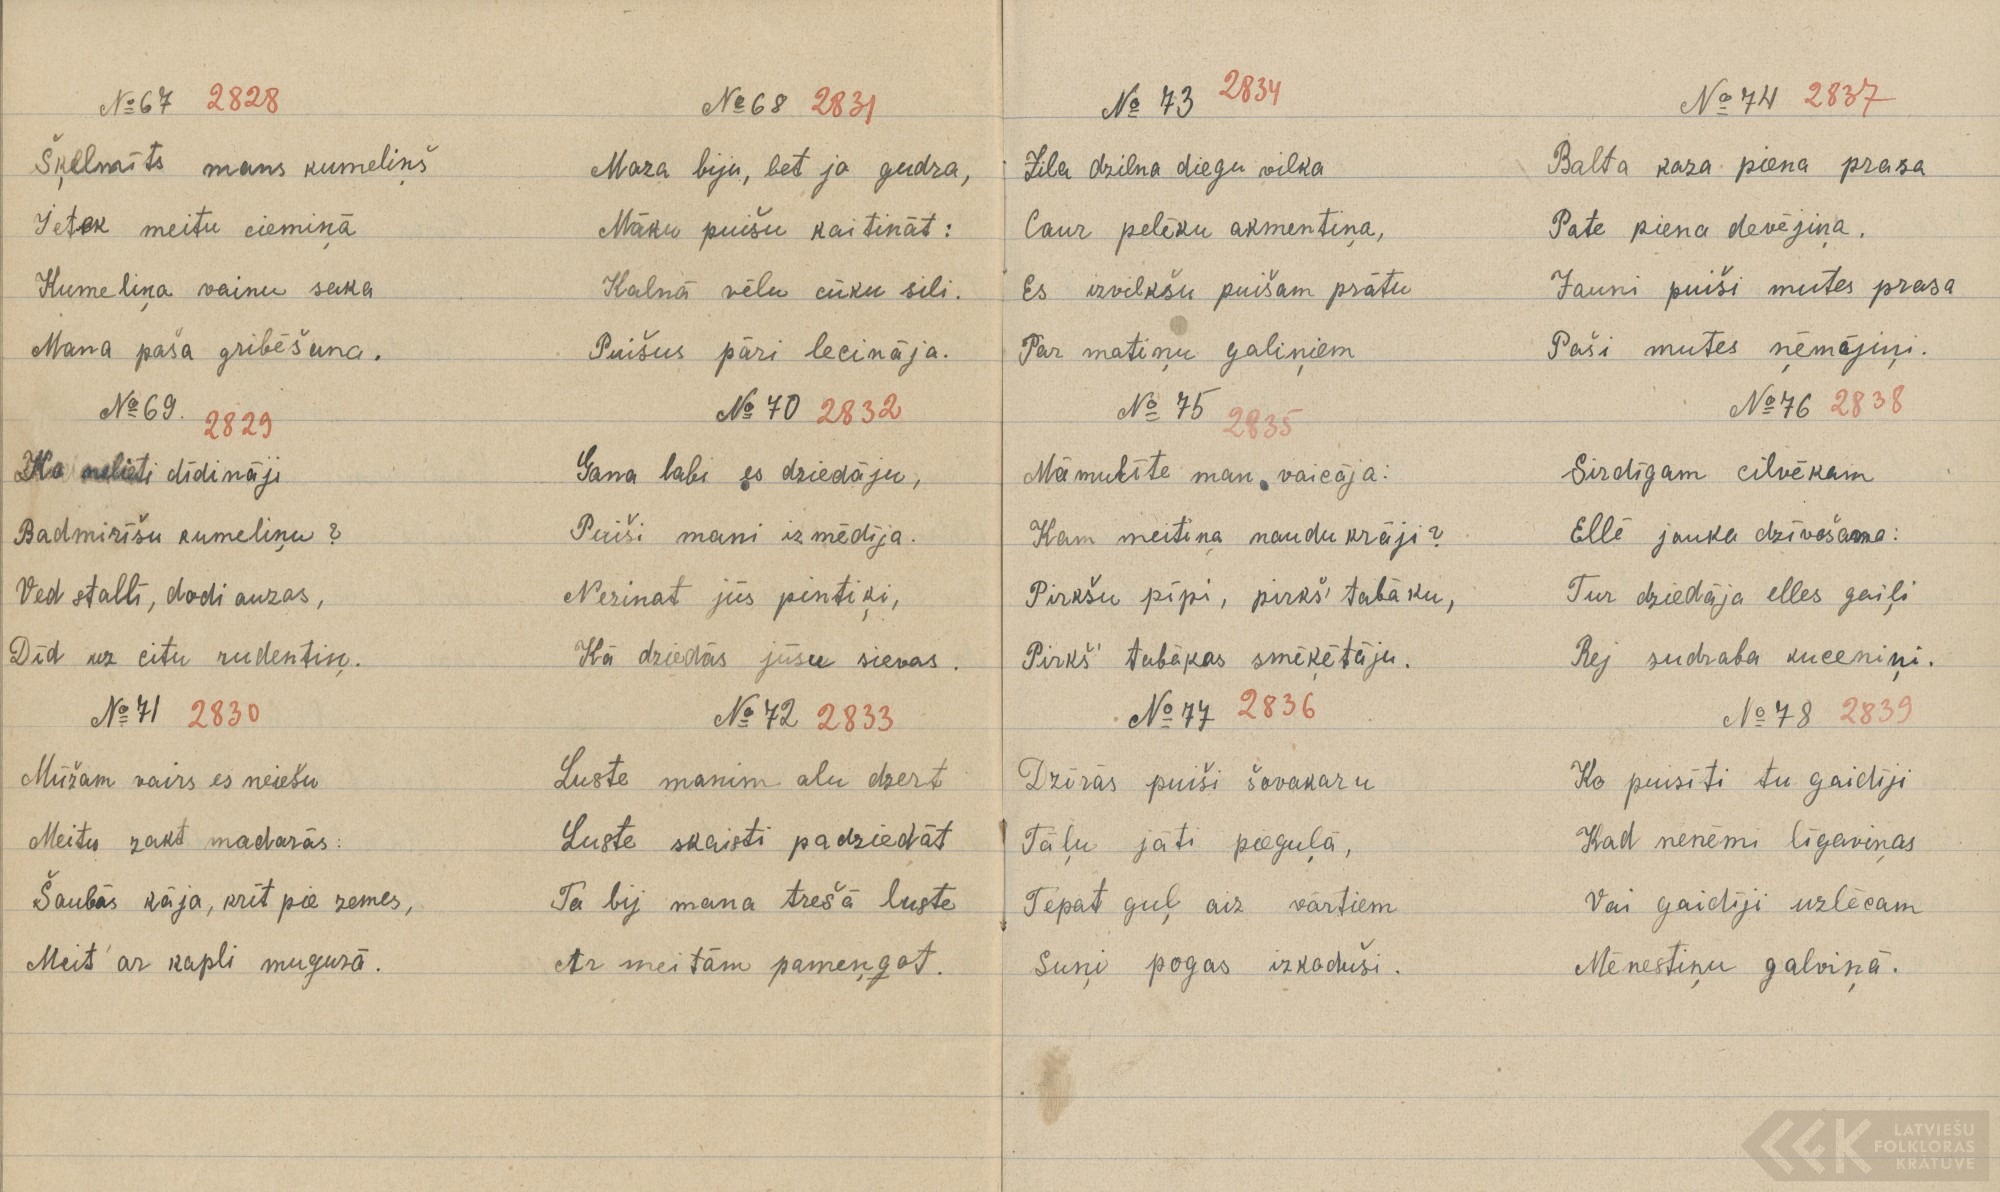 № 67 2828
Šķelmīts mans kumeliņš
Ietek meitu ciemiņā
Kumeliņa vainu saka
Mana paša gribēšana.
№ 69. 2829
Ko nelieti dīdināji
Badmirīšu kumeliņu?
Ved stallī, dodi auzas,
Dīd uz citu rudentiņ.
№ 71 2830
Mūžam vairs es neiešu
Meitu zakt madarās:
Šaubās kāja, krīt pie zemes,
Meit' ar kapli mugurā.
№ 68 2831
Maza biju, bet ja gudra,
Māku puišu kaitināt:
Kalnā vēlu cūku sili.
Puišus pāri lecināja.
№ 70 2832
Gana labi es dziedāju,
Puiši mani izmēdīja.
Nezinat jūs pintiķi,
Kā dziedās jūsu sievas.
№ 72 2833
Luste manim alu dzert
Luste skaisti padziedāt
Ta bij mana trešā luste
Ar meitām pameņgot.
№ 73 2834
Zila dzilna diegu vilka
Caur pelēku akmentiņa,
Es izvilkšu puišam prātu
Par matiņu galiņiem
№ 75 2835
Māmulīte man vaicāja:
Kam meitiņa naudu krāji?
Pirkšu pīpi, pirkš' tabāku,
Pirkš' tabākas smēķētāju.
№ 77 2836
Dzīrās puiši šovakaru
Tāļu jāti pieguļā,
Tepat guļ aiz vārtiem
Suņi pogas izkoduši.
№ 74 2837
Balta kaza piena prasa
Pate piena devējiņa.
Jauni puiši mutes prasa
Paši mutes ņēmājiņi.
№ 76 2838
Sirdīgam cilvēkam
Ellē jauka dzīvošana:
Tur dziedāja elles gaiļi
Rej sudraba kuceniņi.
№ 78 2839
Ko puisīti tu gaidīji
Kad neņēmi līgaviņas
Vai gaidīji uzlēcam
Mēnestiņu galviņā.
LATVIEŠU
FOLKLORAS
KRĀTUVE